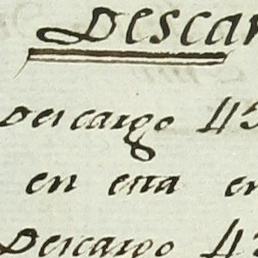 Descar
Descargo 45
en esta en
Descargo 43